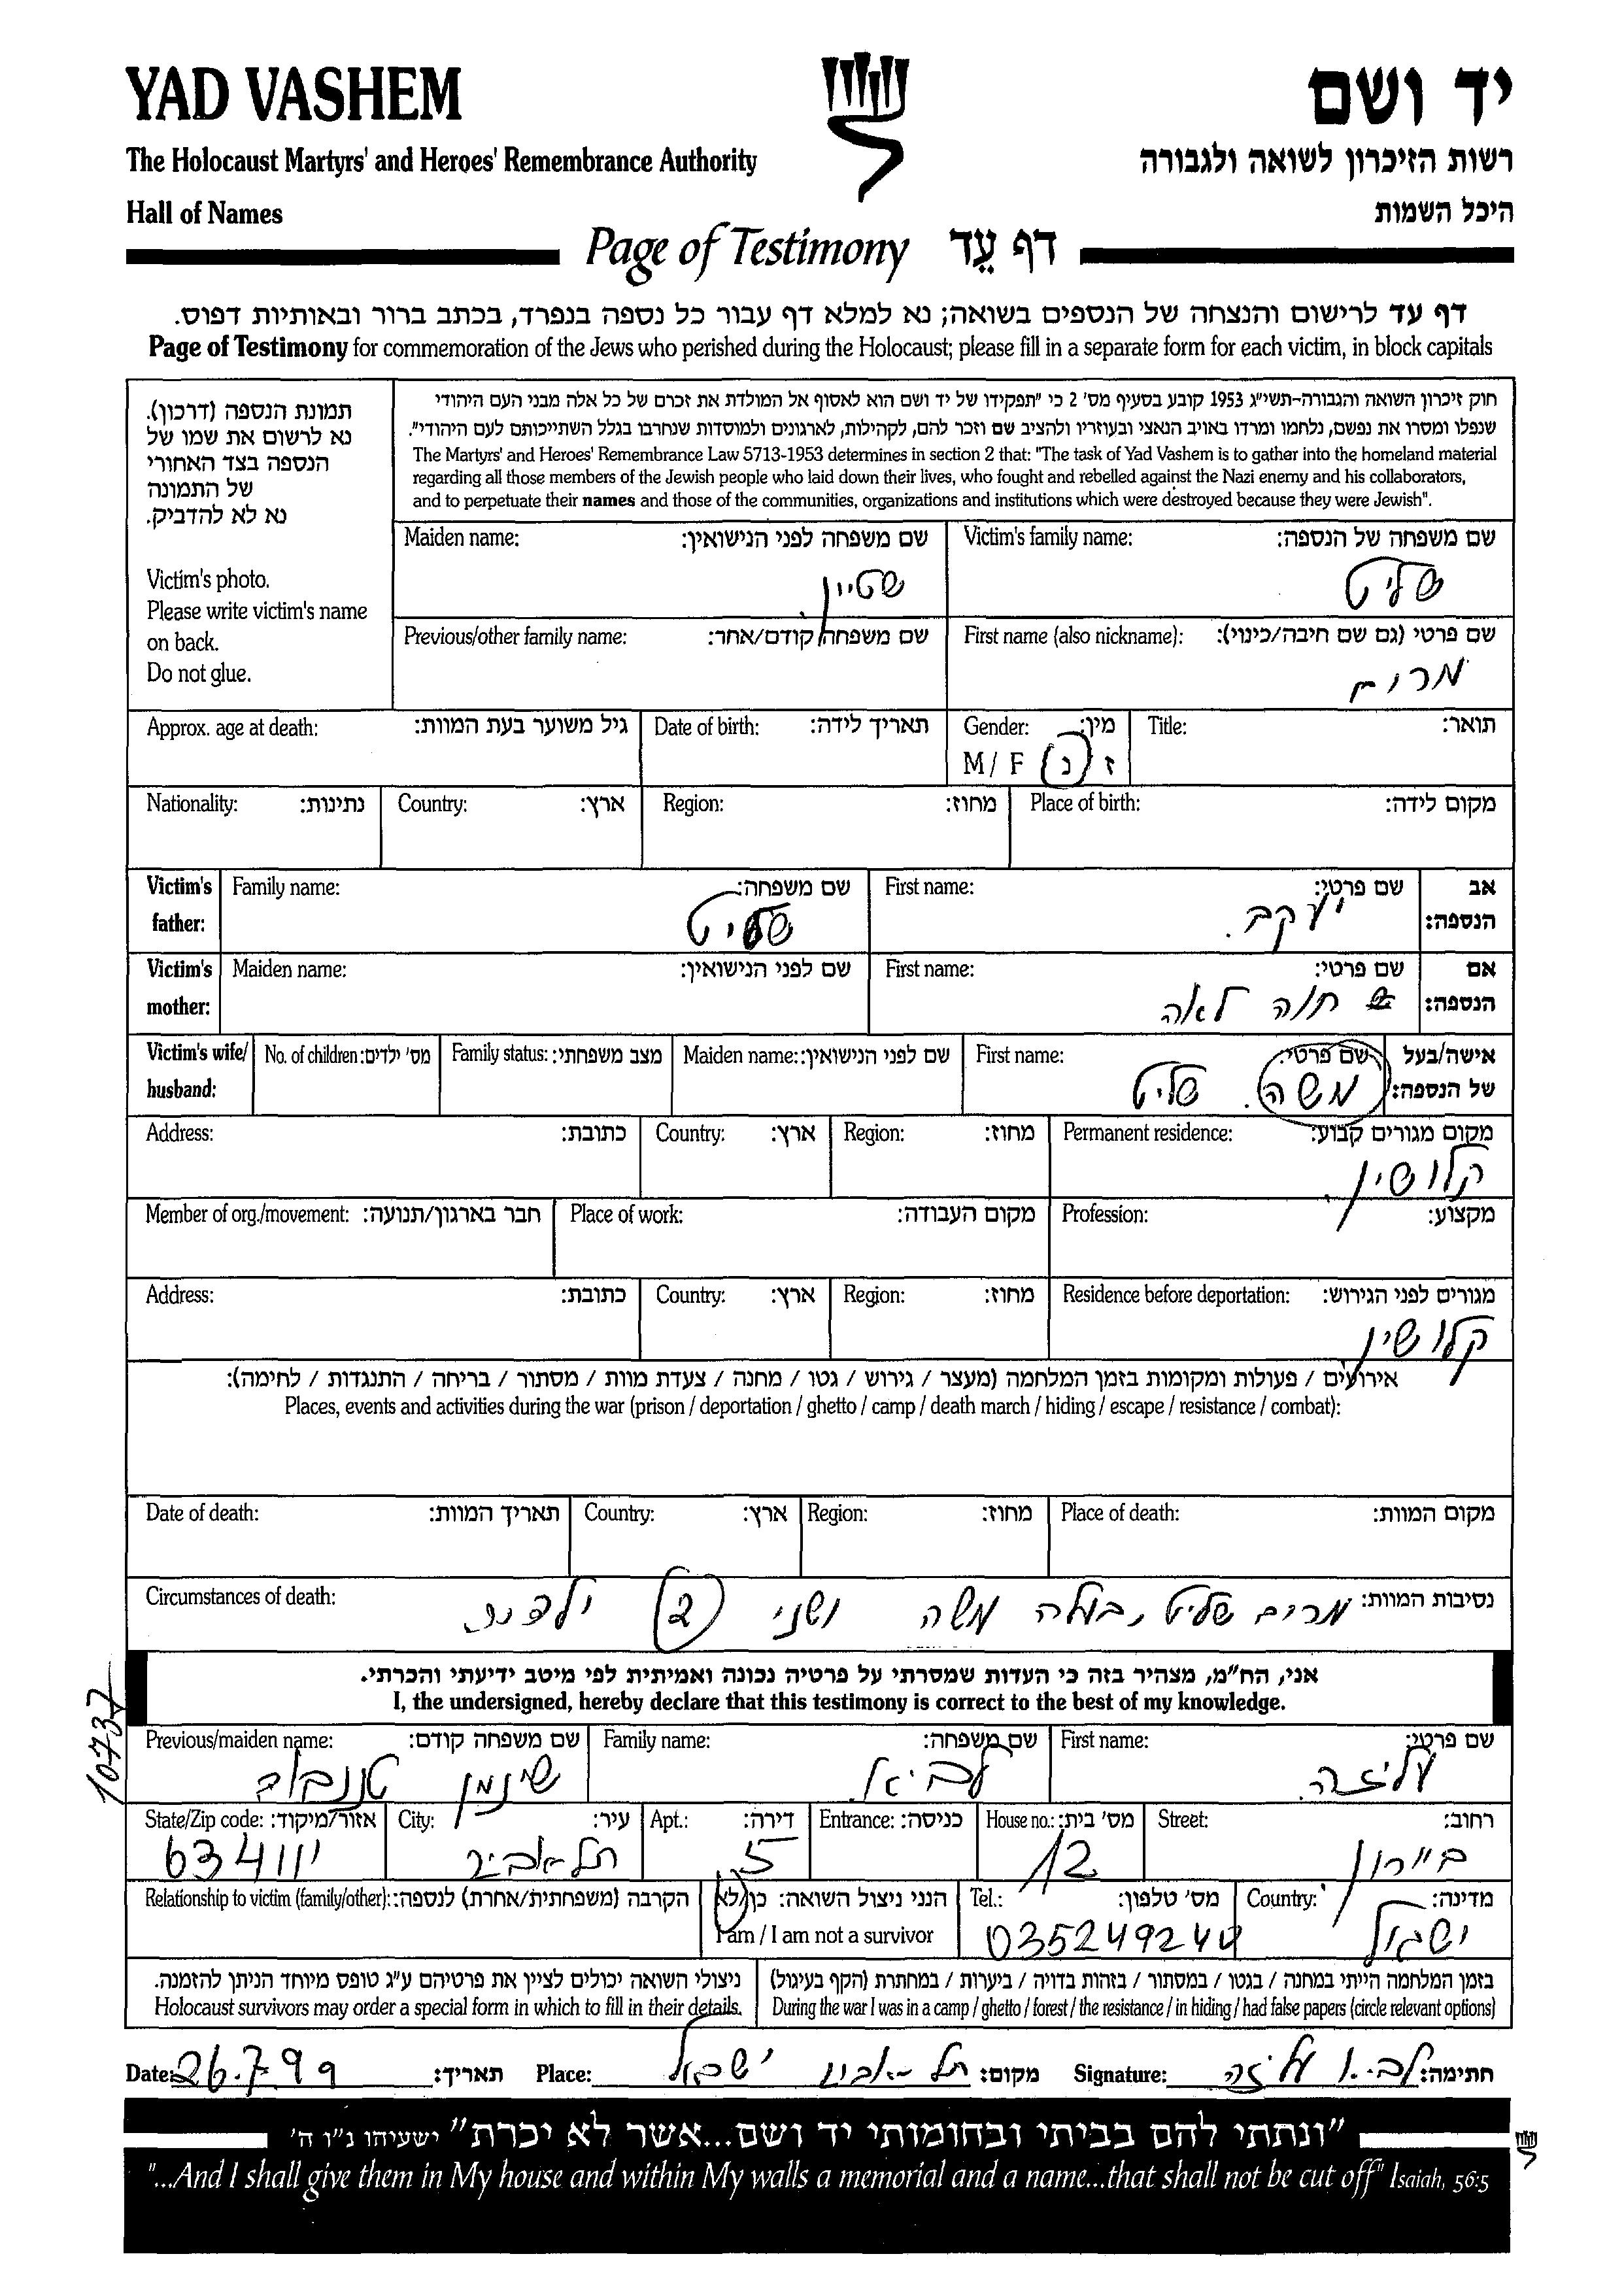 YAD VASHEM
יד ושם
The Holocaust Martyrs' and Heroes' Remembrance Authority
רשות הזיכרון לשואה ולגבורה
Hall of Names
היכל השמות
Page of Testimony דף עֵד
דף עד לרישום והנצחה של הנספים בשואה; נא למלא דף עבור כל נספה בנפרד, בכתב ברור ובאותיות דפוס.
Page of Testimony for commemoration of the Jews who perished during the Holocaust; please fill in a separate form for each victim, in block capitals
תמונת הנספה (דרכון).
נא לרשום את שמו של
הנספה בצד האחורי
של התמונה
נא לא להדביק.
Victim's photo.
Please write victim's name
on back.
Do not glue.
חוק זיכרון השואה והגבורה-תשי"ג 1953 קובע בסעיף מס' 2 כי "תפקידו של יד ושם הוא לאסוף אל המולדת את זכרם של כל אלה מבני העם היהודי
שנפלו ומסרו את נפשם, נלחמו ומרדו באויב הנאצי ובעוזריו ולהציב שם וזכר להם, לקהילות, לארגונים ולמוסדות שנחרבו בגלל השתייכותם לעם היהודי".
The Martyrs' and Heroes' Remembrance Law 5713-1953 determines in section 2 that: "The task of Yad Vashem is to gather into the homeland material
regarding all those members of the Jewish people who laid down their lives, who fought and rebelled against the Nazi enemy and his collaborators,
and to perpetuate their names and those of the communities, organizations and institutions which were destroyed because they were Jewish".
Victim's family name: שם משפחה של הנספה:
שליט
Maiden name: שם משפחה לפני הנישואין:
שטיין
First name (also nickname): שם פרטי (גם שם חיבה/כינוי):
מרים
Previous/other family name: שם משפחה קודם/אחר:
Title: תואר:
Gender: מין:
M / F ז נ
Date of birth: תאריך לידה:
Approx. age at death: גיל משוער בעת המוות:
Place of birth: מקום לידה:
Region: מחוז:
Country: ארץ:
Nationality: נתינות:
Victim's father: אב הנספה:
First name: שם פרטי:
יעקב.
Family name: שם משפחה:
שליט
Victim's mother: אם הנספה:
First name: שם פרטי:
חנה לאה
Maiden name: שם לפני הנישואין:
Victim's wife/ husband: אישה/בעל של הנספה:
First name: שם פרטי:
משה. שליט
Maiden name: שם לפני הנישואין:
Family status: מצב משפחתי:
No. of children: מס' ילדים:
Permanent residence: מקום מגורים קבוע:
קלושין
Region: מחוז:
Country: ארץ:
Address: כתובת:
Profession: מקצוע:
Place of work: מקום העבודה:
Member of org./movement: חבר בארגון/תנועה:
Residence before deportation: מגורים לפני הגירוש:
קלושין
Region: מחוז:
Country: ארץ:
Address: כתובת:
אירועים / פעולות ומקומות בזמן המלחמה (מעצר / גירוש / גטו / מחנה / צעדת מוות / מסתור / בריחה / התנגדות / לחימה):
Places, events and activities during the war (prison / deportation / ghetto / camp / death march / hiding / escape / resistance / combat):
Place of death: מקום המוות:
Region: מחוז:
Country: ארץ:
Date of death: תאריך המוות:
Circumstances of death: נסיבות המוות:
מרים שליט, בעלה משה ושני 2 ילדים
אני, הח"מ, מצהיר בזה כי העדות שמסרתי על פרטיה נכונה ואמיתית לפי מיטב ידיעתי והכרתי.
I, the undersigned, hereby declare that this testimony is correct to the best of my knowledge.
10737
First name: שם פרטי:
עליזה.
Family name: שם משפחה:
לביא
Previous/maiden name: שם משפחה קודם:
שינמן טננבוים
Street: רחוב:
ביירון
House no.: מס' בית:
12
Entrance: כניסה:
Apt.: דירה:
5
City: עיר:
תל אביב
State/Zip code: אזור/מיקוד:
63411
Country: מדינה:
ישראל
Tel.: מס' טלפון:
035249240
הנני ניצול השואה: כן/לא
I am / I am not a survivor
Relationship to victim (family/other): הקרבה (משפחתית/אחרת) לנספה:
בזמן המלחמה הייתי במחנה / בגטו / במסתור / בזהות בדויה / ביערות / במחתרת (הקף בעיגול)
During the war I was in a camp / ghetto / forest / the resistance / in hiding / had false papers (circle relevant options)
ניצולי השואה יכולים לציין את פרטיהם ע"ג טופס מיוחד הניתן להזמנה.
Holocaust survivors may order a special form in which to fill in their details.
Date: 26.7.99 תאריך: Place: תל-אביב ישראל מקום: Signature: לביא עליזה חתימה:
"ונתתי להם בביתי ובחומותי יד ושם...אשר לא יכרת" ישעיהו נ"ו ה'
"...And I shall give them in My house and within My walls a memorial and a name...that shall not be cut off" Isaiah, 56:5